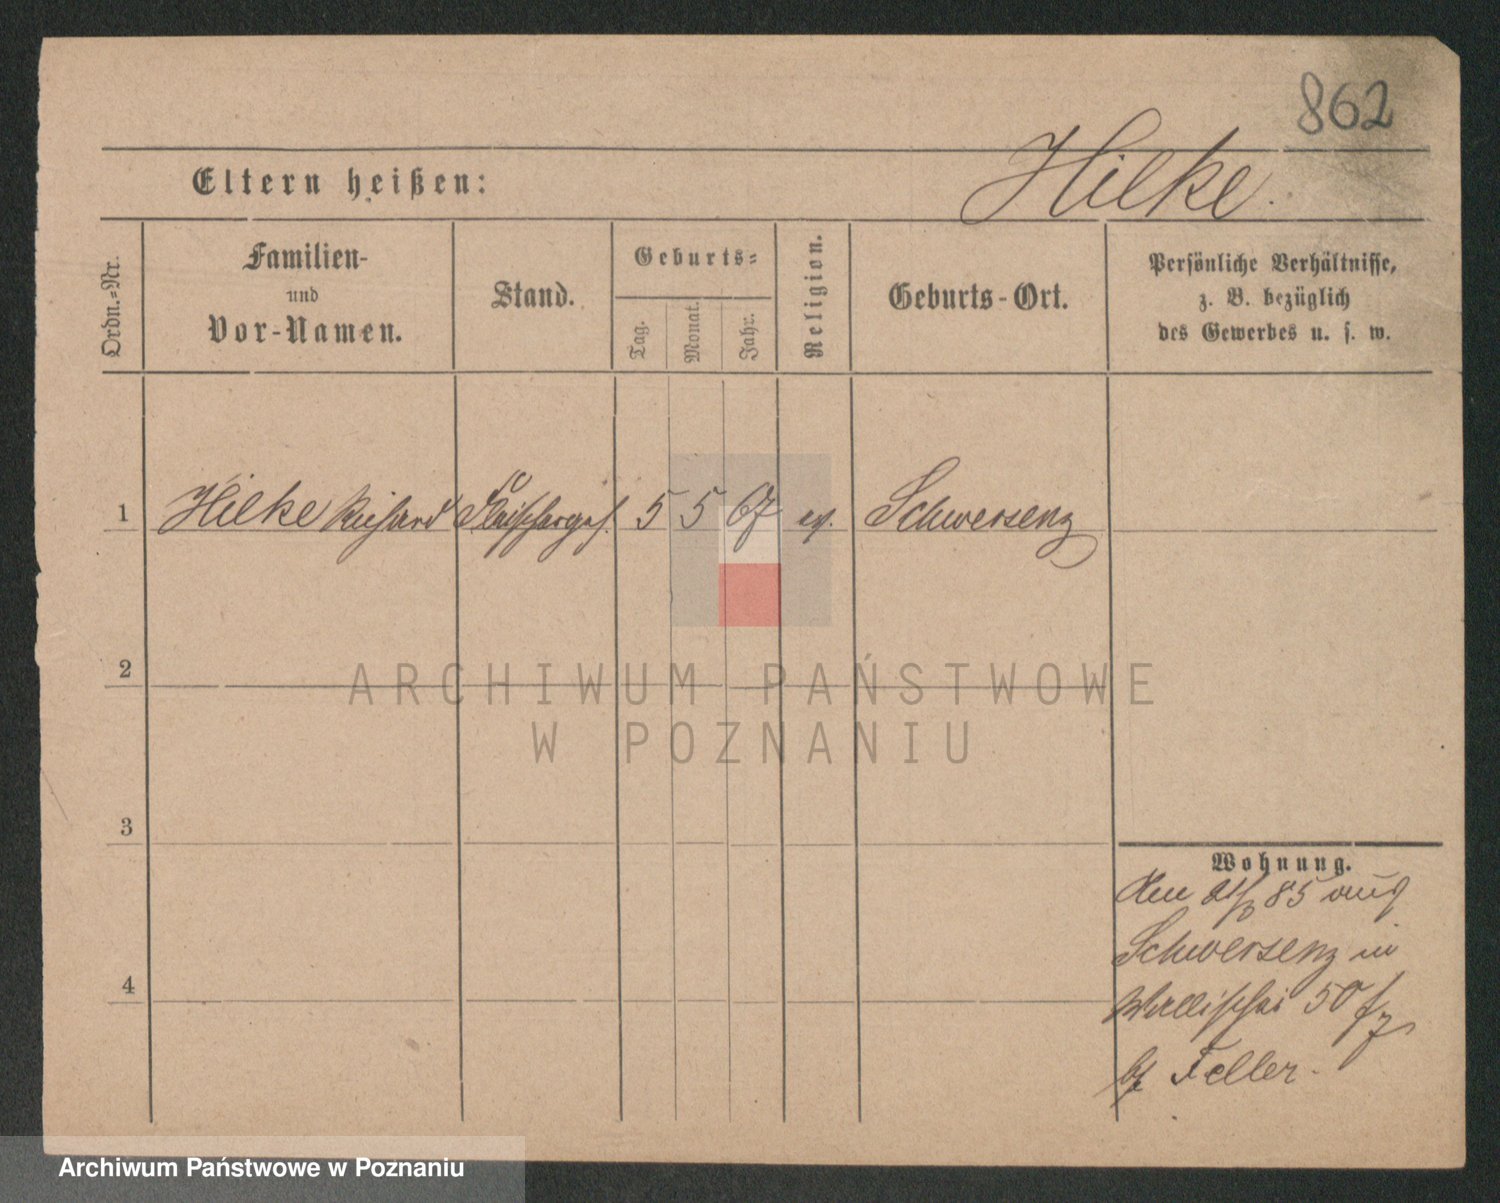 862
Hilke.
Eltern heißen:
Ordn.=Nr.
Familien-
und
Vor-Namen.
Stand.
Geburts=
Tag.
Monat.
Jahr.
Religion.
Geburts-Ort.
Persönliche Verhältnisse,
z. B. bezüglich
des Gewerbes u. s. w.
1 Hilke Richard Fleischerges. 5 5 67 ev. Schwersenz
2
ARCHIWUM PAŃSTWOWE
W POZNANIU
3
Wohnung.
85 aus
Schwersenz in
4
Wallischei 50
bei Feller.
Archiwum Państwowe w Poznaniu